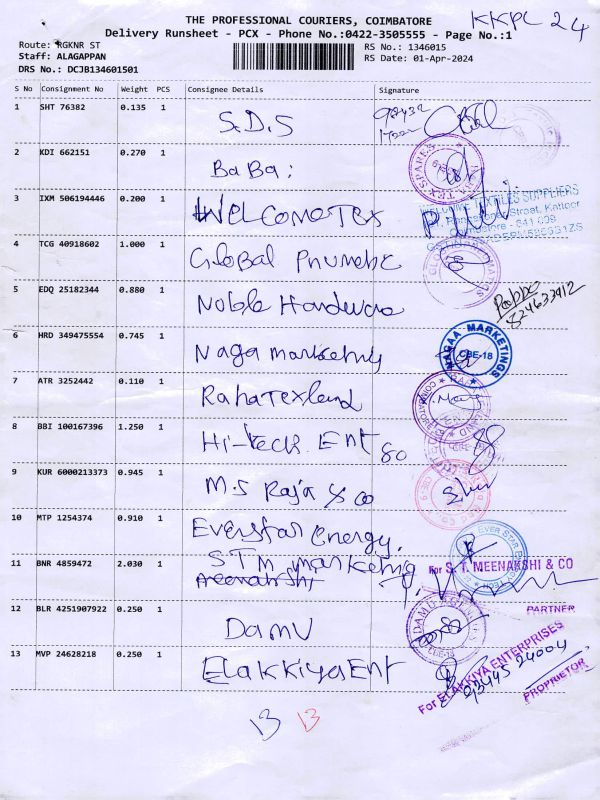 THE PROFESSIONAL COURIERS, COIMBATORE
KKPC 24
Delivery Runsheet - PCX - Phone No.:0422-3505555 - Page No.:1
Route: RGKNR ST
RS No.: 1346015
Staff: ALAGAPPAN
RS Date: 01-Apr-2024
DRS No.: DCJB134601501
S No Consignment No Weight PCS Consignee Details Signature
1 SHT 76382 0.135 1 S.D.S 98432
2 KDI 662151 0.270 1 BaBa:
3 IXM 506194446 0.200 1 WELComeTex
TEXTILES SUPPLIERS
Street, Kattoor
Coimbatore - 641 009
4 TCG 40918602 1.000 1 Global Pnumetic
5 EDQ 25182344 0.880 1 Noble Hardware
6 HRD 349475554 0.745 1 Naga marketing
NAGAA MARKETINGS
CBE-18
7 ATR 3252442 0.110 1 RahaTexland
8 BBI 100167396 1.250 1 Hi-tech Ent 80
9 KUR 6000213373 0.945 1 M.S Raja & co
10 MTP 1254374 0.910 1 Everstar Energy.
11 BNR 4859472 2.030 1 STM marketing
meenakshi
For S. T. MEENAKSHI & CO
PARTNER
12 BLR 4251907922 0.250 1 Damu
13 MVP 24628218 0.250 1 ElakkiyaEnt
For ELAKKIYA ENTERPRISES
PROPRIETOR
13 13